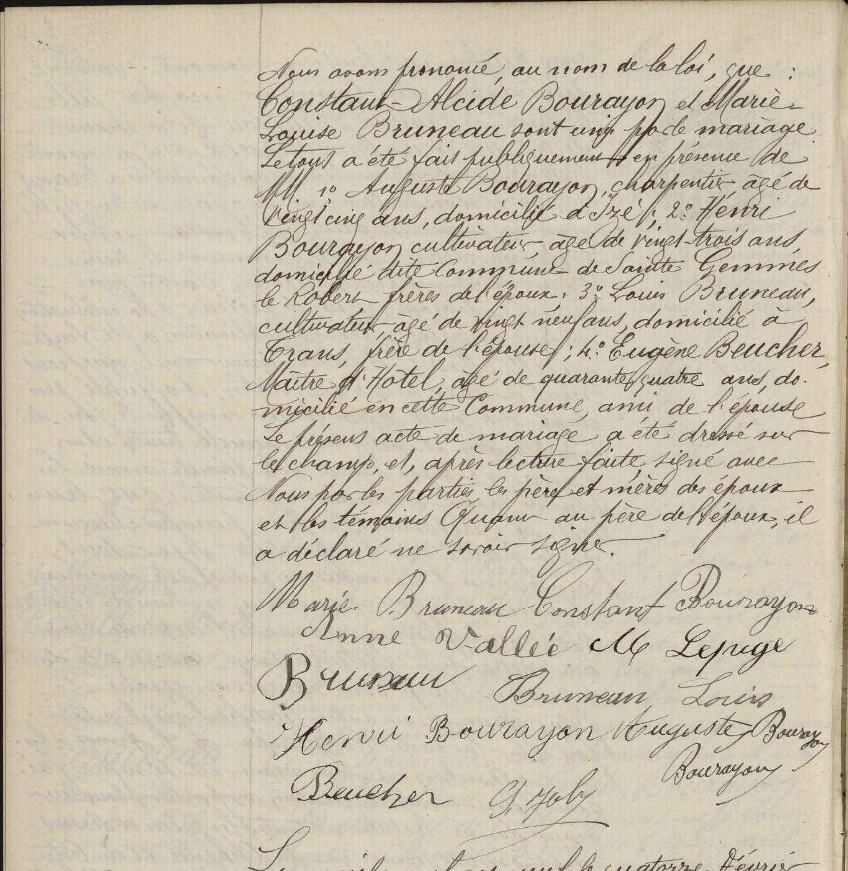 Nous avons prononcé, au nom de la loi, que :
Constant-Alcide Bourayon et Marie-
Louise Bruneau sont unis par le mariage.
Le tous a été fait publiquement en présence de
MM 1o Auguste Bourayon, charpentier âgé de
vingt cinq ans, domicilié à Izé ; 2o Henri
Bourayon cultivateur, âgé de vingt-trois ans,
domicilié dite Commune de Sainte Gemmes
le Robert frères de l'époux ; 3o Louis Bruneau,
cultivateur, âgé de vingt neuf ans, domicilié à
Trans, frère de l'épouse ; 4o Eugène Beucher,
Maître d'Hôtel, âgé de quarante quatre ans, do-
micilié en cette Commune, ami de l'épouse
Le présent acte de mariage a été dressé sur
le champ, et, après lecture faite signé avec
Nous par les parties, les père et mères des époux
et les témoins Quant au père de l'époux, il
a déclaré ne savoir signer.
Marie Bruneau Constant Bourayon
Anne Vallée M Lepage
Bruneau Bruneau Louis
Henri Bourayon Auguste Bourayon
Bourayon
Beucher
le quatorze Février